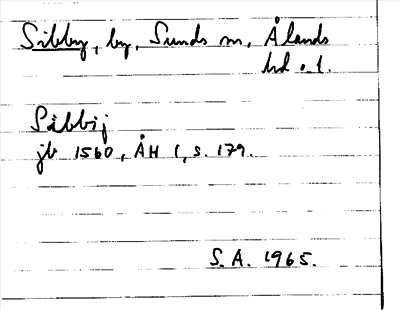 Sibby, by, Sunds sn, Ålands
hd o. l.
Sibbij
jb 1560, ÅH 1, s. 179.
S.A. 1965.